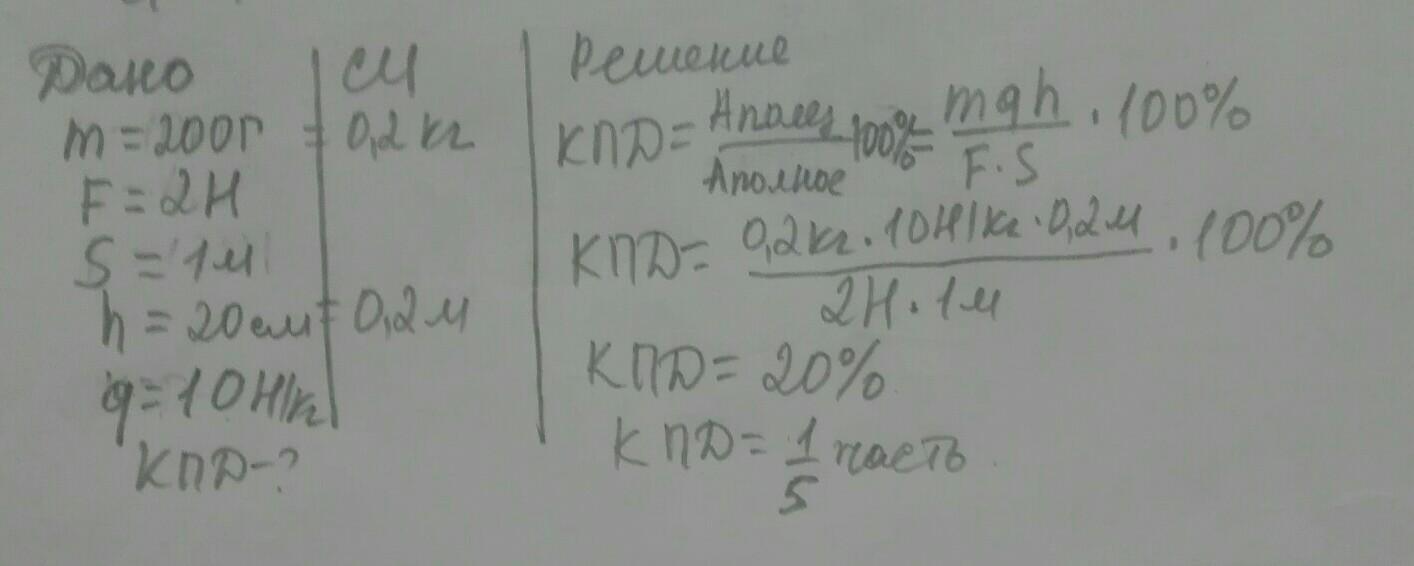 Дано
m = 200г
F = 2Н
S = 1м
h = 20см
g = 10Н/кг
КПД-?
СИ
= 0,2 кг
= 0,2 м
Решение
КПД = Аполез / Аполное 100% = mgh / F·S · 100%
КПД = 0,2кг · 10Н/кг · 0,2м / 2Н · 1м · 100%
КПД = 20%
КПД = 1/5 часть